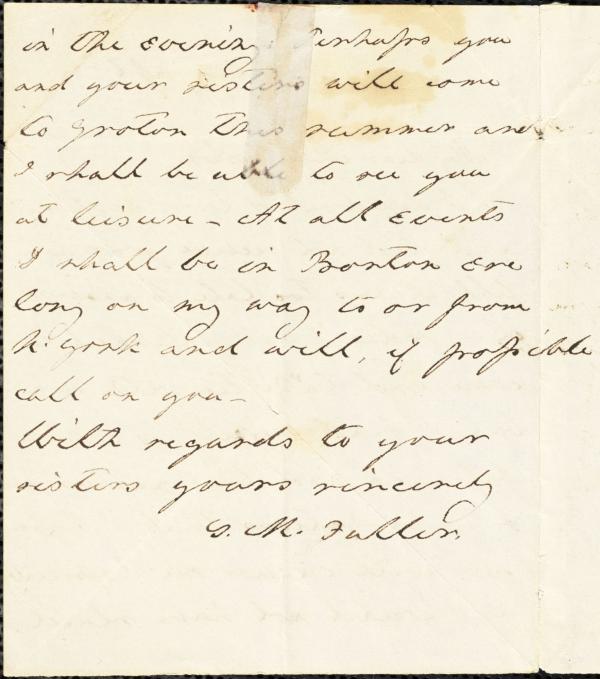 in the Evening. Perhaps you
and your sisters will come
to Groton this summer and
I shall be able to see you
at leisure - At all Events
I shall be in Boston ere
long on my way to or from
N. York and will, if possible
call on you -
With regards to your
sisters yours sincerely
S. M. Fuller.